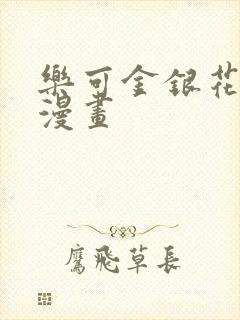 樂可金銀花
漫畫
鷹飛草長